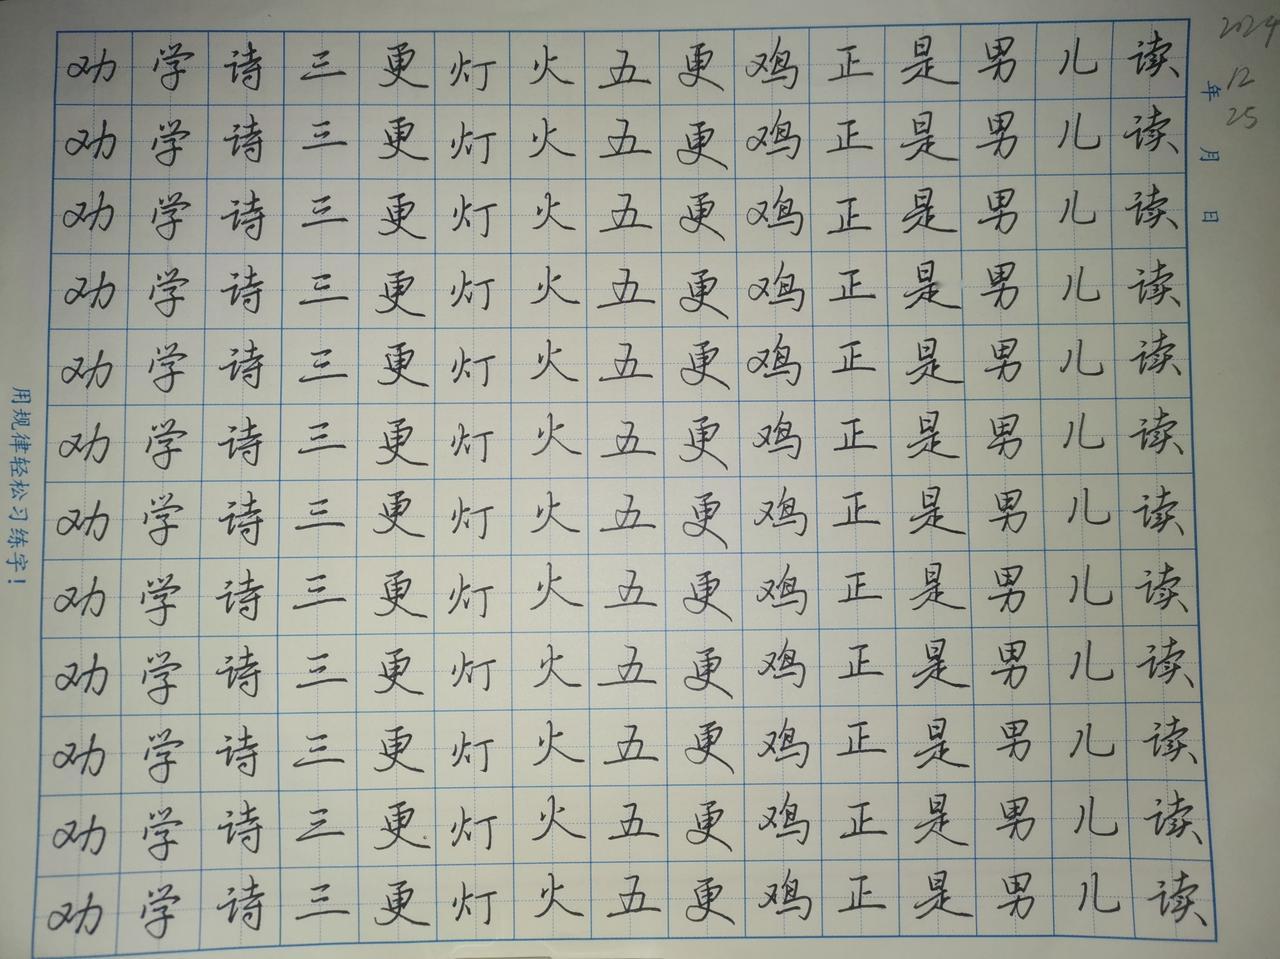 劝学诗三更灯火五更鸡正是男儿读
劝学诗三更灯火五更鸡正是男儿读
劝学诗三更灯火五更鸡正是男儿读
劝学诗三更灯火五更鸡正是男儿读
劝学诗三更灯火五更鸡正是男儿读
劝学诗三更灯火五更鸡正是男儿读
劝学诗三更灯火五更鸡正是男儿读
劝学诗三更灯火五更鸡正是男儿读
劝学诗三更灯火五更鸡正是男儿读
劝学诗三更灯火五更鸡正是男儿读
劝学诗三更灯火五更鸡正是男儿读
劝学诗三更灯火五更鸡正是男儿读
2024
12
25
年月日
用规律轻松习练字!